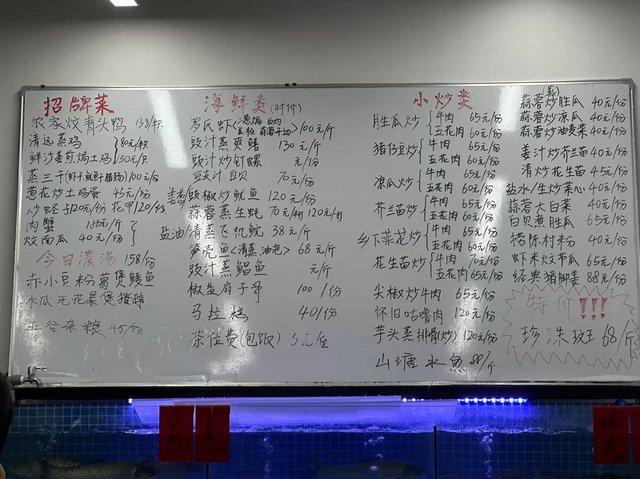 招牌菜
农家炆青头鸭 138/只
清远蒸鸡
鲜沙姜煎焗土鸡
80元/只
150元/只
蒸三干(虾干鱿鱼干腊肠)100元/份
葱花炒土鸡蛋 45元/份
120元/份 花甲120/份
肉蟹
炆南瓜 40元/份
今日濃汤 158/份
赤小豆粉葛煲鲮鱼
木瓜无花果煲猪踭
五谷杂粮 45/份
海鲜类(时价)
罗氏虾 100元/斤
豉汁蒸 130元/斤
豉汁炒钉螺 元/份
70元/份
豉椒炒鱿鱼 120元/份
蒜蓉蒸生蚝 70元/ 120元/
清蒸飞机鱿 38元/斤
笋壳鱼<清蒸 油泡> 68元/斤
豉汁蒸鲳鱼 元/斤
椒盐 100 /份
马拉糕 40/份
茶位费(包饭) 5元/位
小炒类
胜瓜炒 牛肉 65元/份
五花肉 60元/份
猪仔豆炒 牛肉 65元/份
五花肉 60元/份
凉瓜炒 牛肉 65元/份
五花肉 60元/份
芥兰苗炒 牛肉 65元/份
五花肉 60元/份
乡下菜花炒 牛肉 65元/份
五花肉 60元/份
花生苗炒 牛肉 70元/份
五花肉 65元/份
尖椒炒牛肉 65元/份
怀旧咕噜肉 120元/份
芋头蒸排骨(炒) 120元/份
山塘水鱼 88/斤
蒜蓉炒胜瓜 40元/份
蒜蓉炒凉瓜 40元/份
蒜蓉炒油麦菜 40元/份
姜汁炒芥兰苗 40元/份
清炒花生苗 45元/份
盐水/生炒菜心 40元/份
蒜蓉大白菜 40元/份
白贝煮胜瓜 65元/份
杨桥村粉 40元/份
虾米炆节瓜 65元/份
经典猪脚姜 88元/份
特价!!!
珍珠斑 68/斤